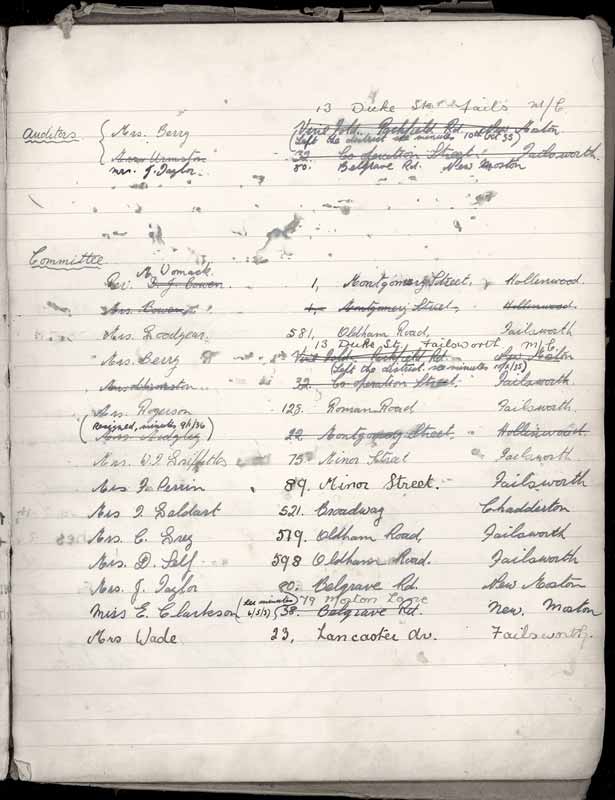 13 Duke St Fails M/C
Auditors { Mrs. Berry Birchfield Rd. New Moston
(Left the district see minutes 10th Oct 35)
Mrs Urmston 32. Co operation Street. Failsworth
Mrs. J. Taylor 80. Belgrave Rd. New Moston
Committee
A. Vomack.
Rev. J. Cowen 1, Montgomery Street, Hollinwood
Mrs. Cowen, 1, Montgomery Street, Hollinwood
Mrs. Goodyear. 581, Oldham Road, Failsworth
13 Duke St. Failsworth M/C.
Mrs. Berry Birchfield Rd. New Moston
(Left the district see minutes
Mrs Urmston 32. Co operation Street. Failsworth
Mrs. Rogerson 123. Roman Road Failsworth.
(Resigned, minutes 9/1/36)
Mrs Midgley 22 Montgomery Street, Hollinwood.
Mrs. W. J. Griffiths 75 Minor Street Failsworth
Mrs F. Perrin 89. Minor Street. Failsworth
Mrs J. Geldart 521. Broadway Chadderton
Mrs. C. 579. Oldham Road, Failsworth
Mrs. D. Self 598 Oldham Road. Failsworth
Mrs. J. Taylor 80. Belgrave Rd. New Moston
(see minutes 79 Moston Lane
Miss E. Clarkson 6/5/37) 38. Belgrave Rd. New. Moston
Mrs Wade 23, Lancaster dr. Failsworth.